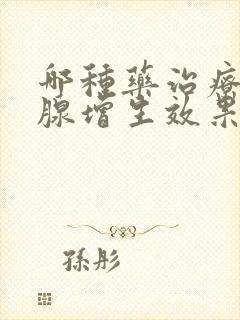 哪種藥治療
腺增生效果
孫彤